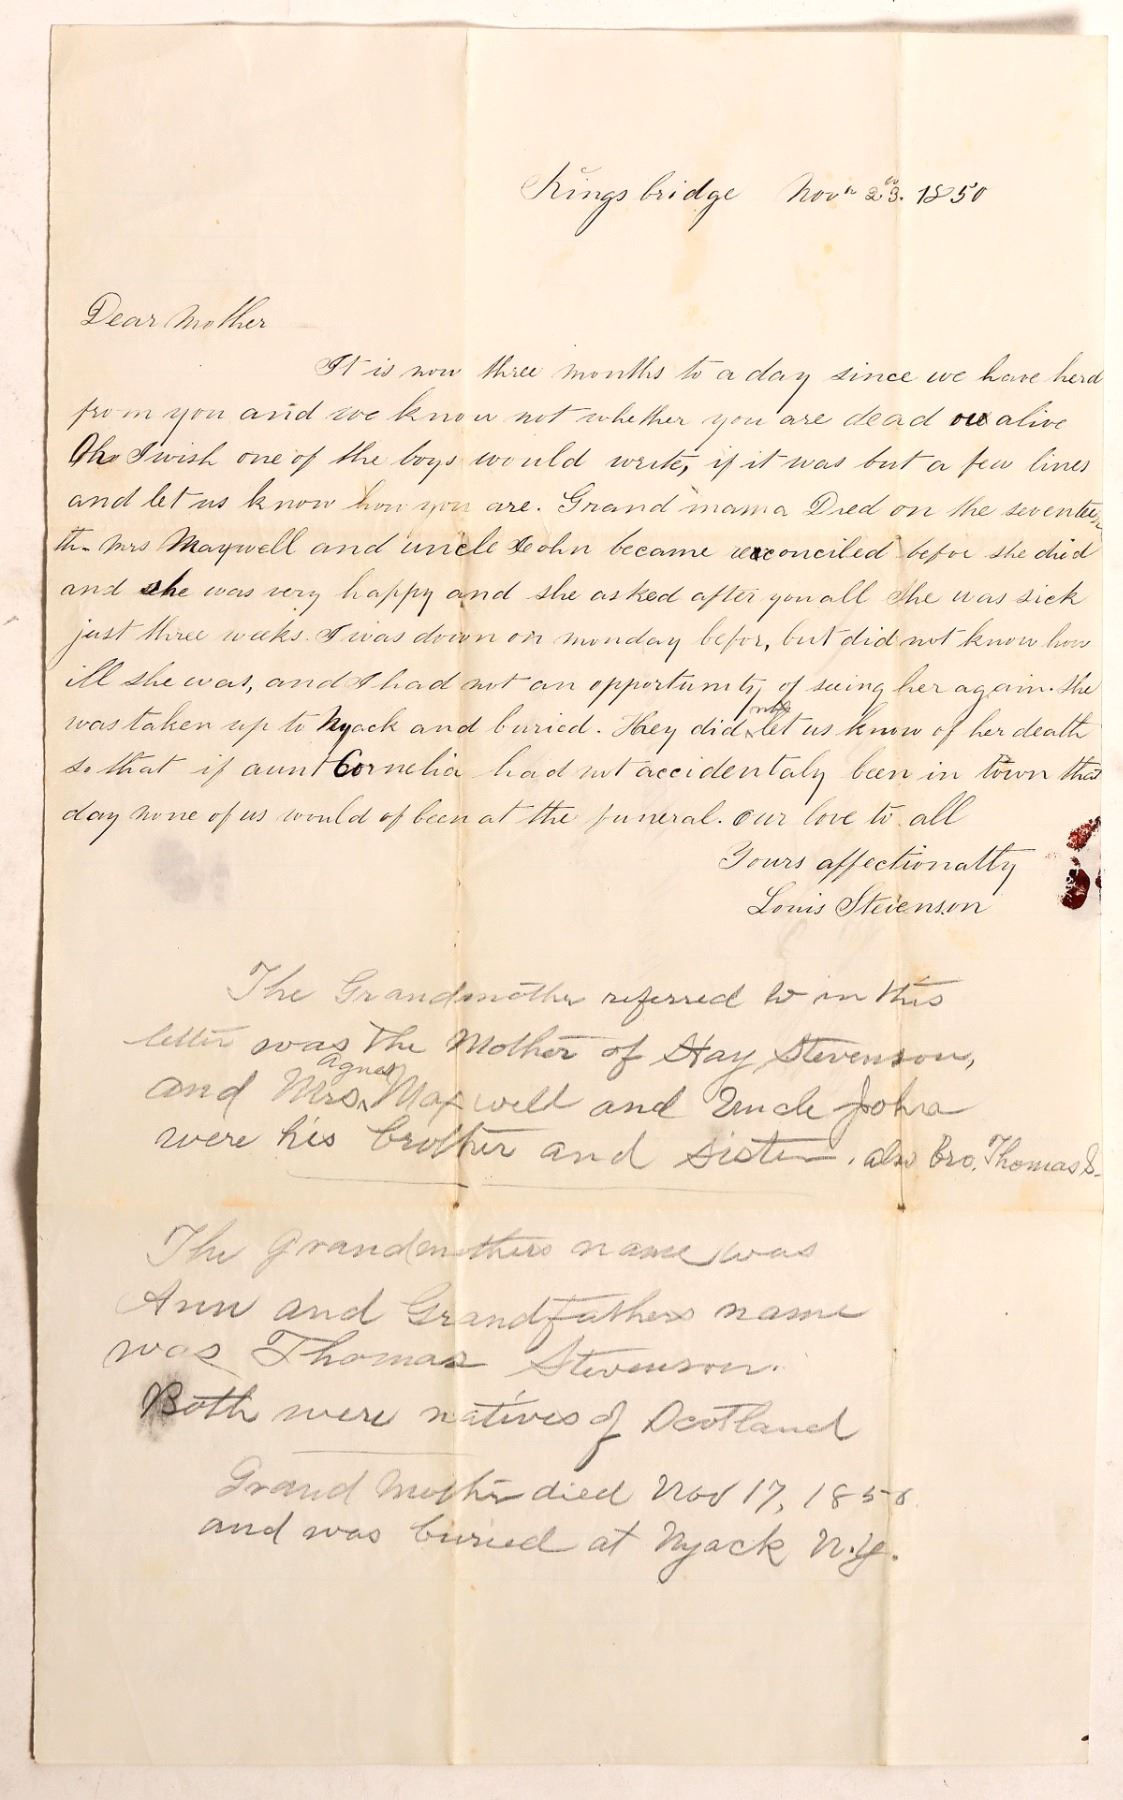 Kingsbridge Novr 23. 1850
Dear Mother
It is now three months to a day since we have herd
from you and we know not whether you are dead or alive
Oh I wish one of the boys would write, if it was but a few lines
and let us know how you are. Grand mama Died on the seventeen
th. Mrs Maxwell and uncle John became reconciled befor she died
and she was very happy and she asked after you all She was sick
just three weeks. I was down on monday befor, but did not know how
ill she was, and I had not an opportunity of seing her again. She
was taken up to Nyack and buried. They did not let us know of her death
so that if aunt Cornelia had not accidentaly been in town that
day none of us would of been at the funeral. Our love to all
Yours affectionatly
Louis Stevenson
The Grandmother referred to in this
letter was the Mother of Hay Stevenson,
and Mrs. Agnes Maxwell and Uncle John
were his brother and sister. also Bro. Thomas S.
The Grandmothers name was
Ann and Grandfathers name
was Thomas Stevenson.
Both were natives of Scotland
Grand Mother died Nov 17, 1850
and was buried at Nyack N.Y.